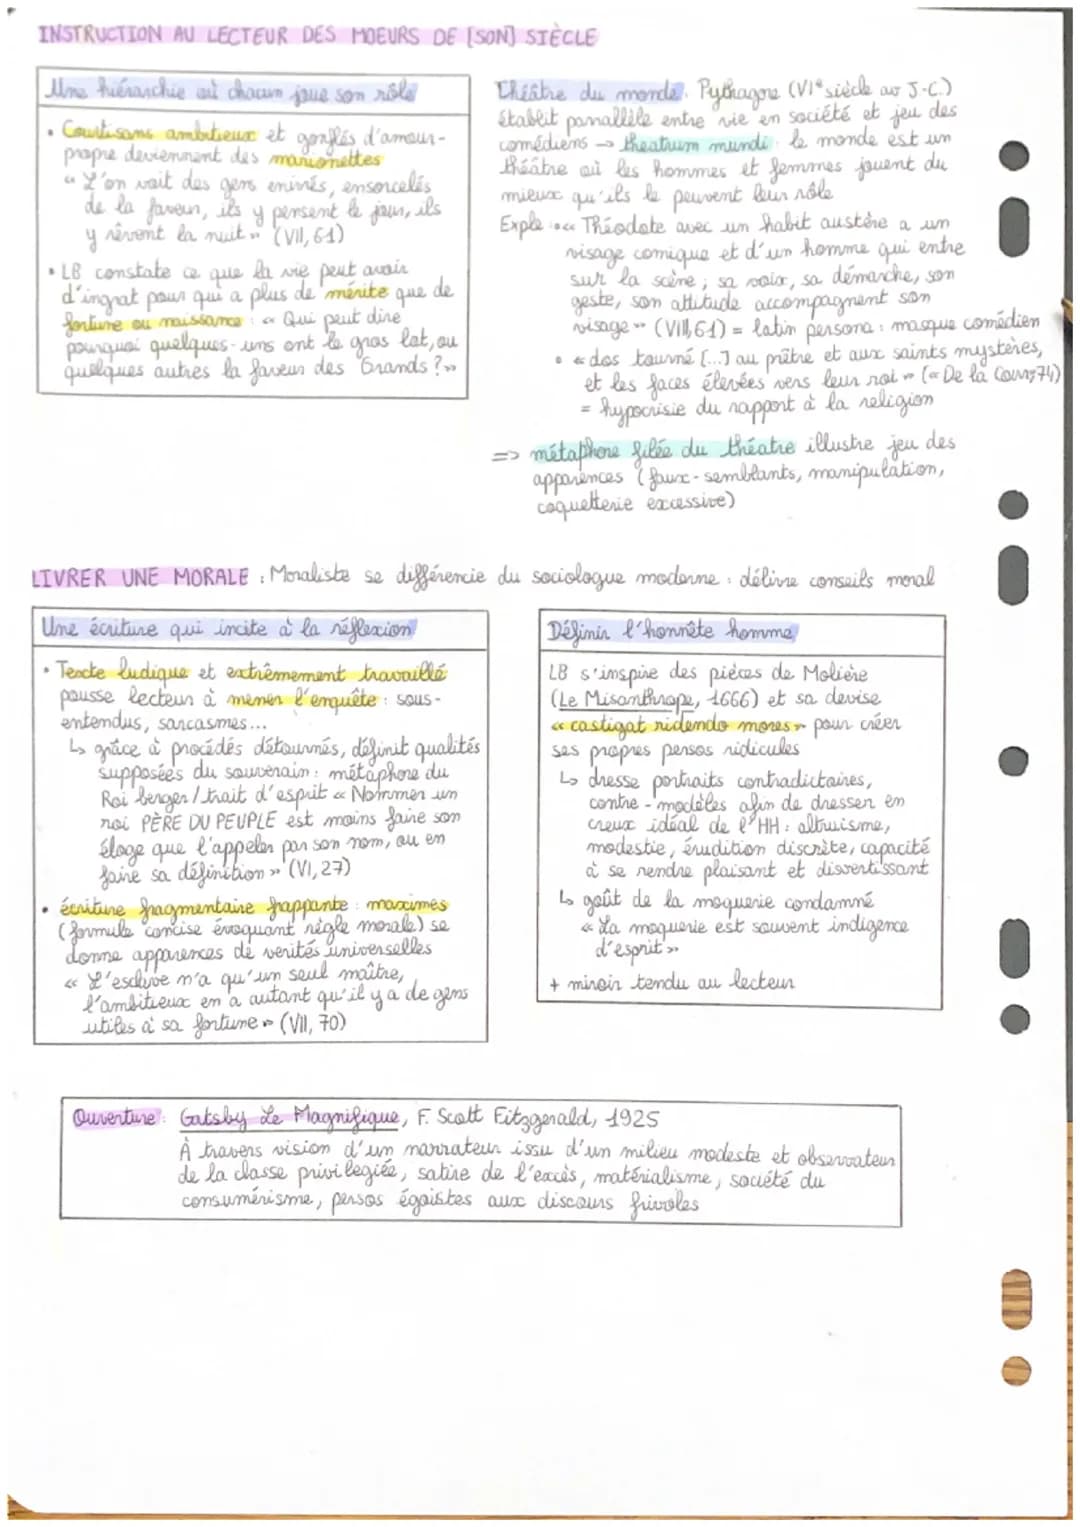 INSTRUCTION AU LECTEUR DES MOEURS DE [SON] SIÈCLE
Une hiérarchie où chacun joue son rôle
• Courtisans ambitieux et gonflés d'amour-
propre deviennent des marionettes
« L'on voit des gens enivrés, ensorcelés
de la faveur, ils y pensent le jour, ils
y rêvent la nuit » (VII, 61)
• LB constate ce que la vie peut avoir
d'ingrat pour qui a plus de mérite que de
fortune ou naissance : « Qui peut dire
pourquoi quelques-uns ont le gros lot, ou
quelques autres la faveur des Grands ? »
Théâtre du monde. Pythagore (VIe siècle av J-C.)
établit parallèle entre vie en société et jeu des
comédiens → theatrum mundi : le monde est un
théâtre où les hommes et femmes jouent du
mieux qu'ils le peuvent leur rôle
Exple : • « Théodote avec un habit austère a un
visage comique et d'un homme qui entre
sur la scène ; sa voix, sa démarche, son
geste, son attitude accompagnent son
visage » (VIII, 61) = latin persona : masque comédien
• « dos tourné [...] au prêtre et aux saints mystères,
et les faces élevées vers leur roi » (« De la Cour, 74)
= hypocrisie du rapport à la religion
=> métaphore filée du théatre illustre jeu des
apparences (faux-semblants, manipulation,
coquetterie excessive)
LIVRER UNE MORALE : Moraliste se différencie du sociologue moderne : délivre conseils moral
Une écriture qui incite à la réflexion
• Texte ludique et extrêmement travaillé
pousse lecteur à mener l'enquête : sous-
entendus, sarcasmes...
↳ grâce à procédés détournés, définit qualités
supposées du souverain : métaphore du
Roi berger / trait d'esprit « Nommer un
roi PÈRE DU PEUPLE est moins faire son
éloge que l'appeler par son nom, ou en
faire sa définition » (VI, 27)
• écriture fragmentaire frappante : maximes
(formule concise évoquant règle morale) se
donne apparences de vérités universelles
« L'esclave n'a qu'un seul maître,
l'ambitieux en a autant qu'il y a de gens
utiles à sa fortune » (VII, 70)
Définir l'honnête homme
LB s'inspire des pièces de Molière
(Le Misanthrope, 1666) et sa devise
« castigat ridendo mores » pour créer
ses propres persos ridicules
↳ dresse portraits contradictoires,
contre-modèles afin de dresser en
creux idéal de l'HH : altruisme,
modestie, érudition discrète, capacité
à se rendre plaisant et divertissant
↳ goût de la moquerie condamné
« La moquerie est souvent indigence
d'esprit »
+ miroir tendu au lecteur
Ouverture : Gatsby Le Magnifique, F. Scott Fitzgerald, 1925
À travers vision d'un narrateur issu d'un milieu modeste et observateur
de la classe privilegiée, satire de l'excès, matérialisme, société du
consumérisme, persos égoïstes aux discours frivoles